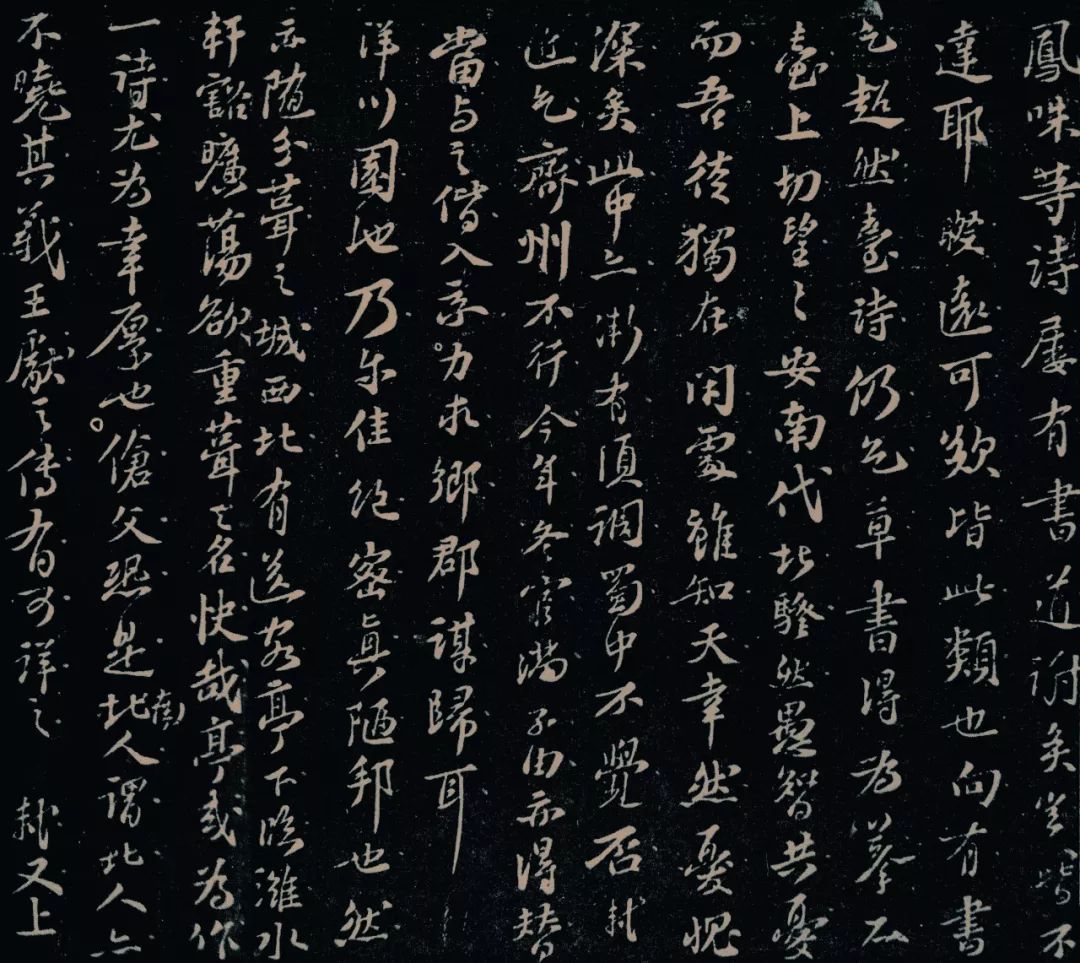 鳳咮等詩屢有書道謝矣豈皆不
達耶暌遠可歎皆此類也向有書
乞超然臺詩仍乞草書得為摹石
臺上切望切望安南代北騷然愚智共憂
而吾徒獨在閑處雖知天幸然憂愧
深矣此中亦漸有須調蜀中不覺否軾
近乞齊州不行今年冬官滿子由亦得替
當與之偕入京力求鄉郡謀歸耳
洋川園池乃尔佳絕密真陋邦也然
亦隨分葺之城西北有送客亭下臨濰水
軒豁曠蕩欲重葺之名快哉亭或為作
一詩尤為幸厚也傖父恐是南北人謂北人亦
不曉其義王獻之傳有可詳之 軾又上